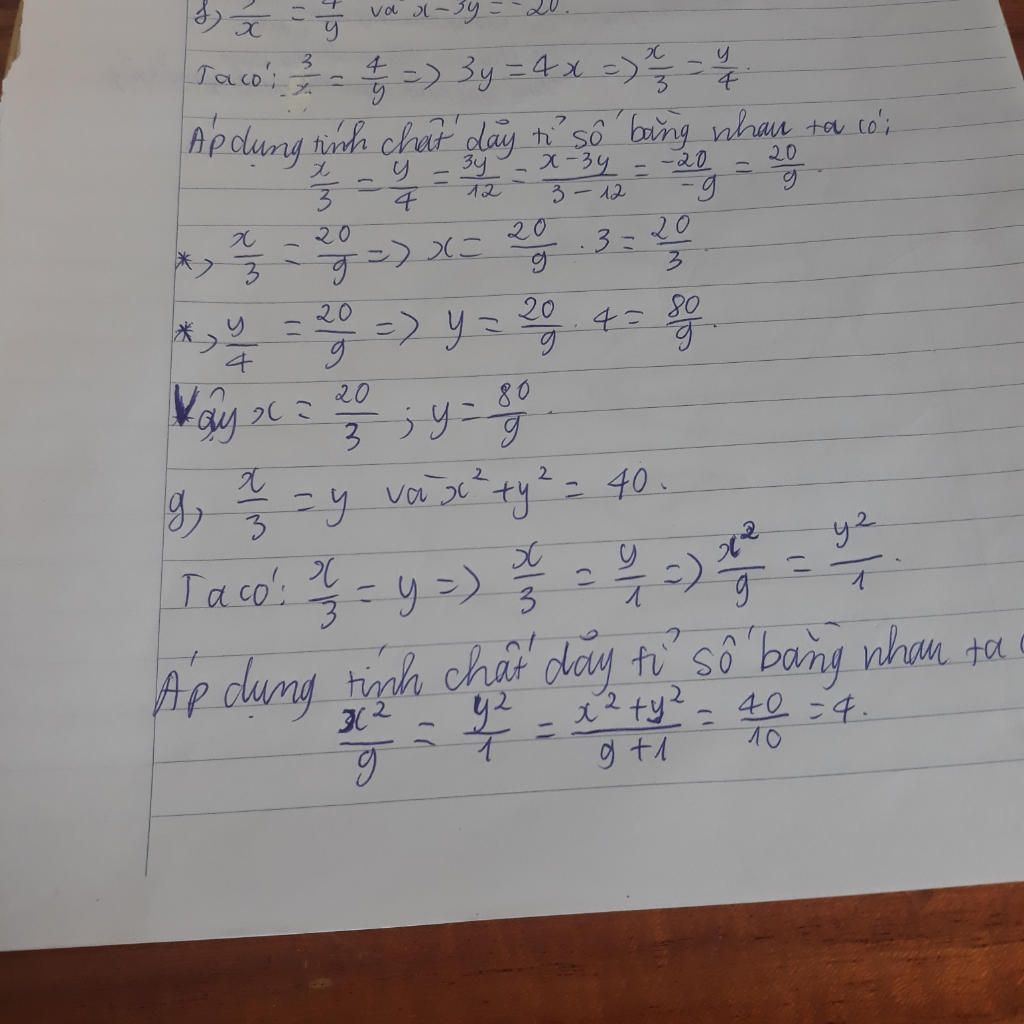 f, 3/x = 4/y và x-3y = -20.
Ta có: 3/x = 4/y => 3y = 4x => x/3 = y/4.
Áp dụng tính chất dãy tỉ số bằng nhau ta có:
x/3 = y/4 = 3y/12 = x-3y/3-12 = -20/-9 = 20/9.
*, x/3 = 20/9 => x = 20/9 . 3 = 20/3.
*, y/4 = 20/9 => y = 20/9 . 4 = 80/9.
Vậy x = 20/3 ; y = 80/9.
g, x/3 = y và x²+y² = 40.
Ta có: x/3 = y => x/3 = y/1 => x²/9 = y²/1.
Áp dụng tính chất dãy tỉ số bằng nhau ta
x²/9 = y²/1 = x²+y²/9+1 = 40/10 = 4.